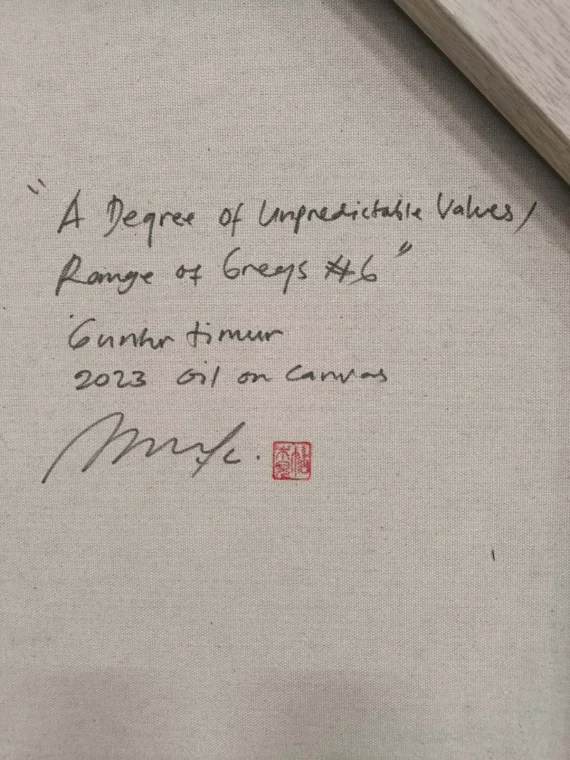 "A Degree of Unpredictable Values/
Range of Greys #6"
Gunhr timur
2023 Oil on Canvas